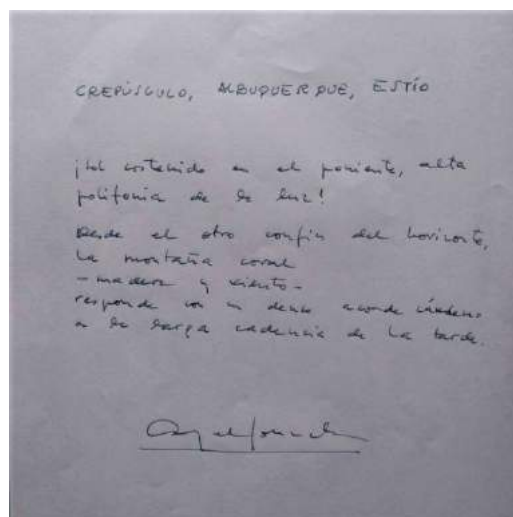 CREPÚSCULO, ALBUQUERQUE, ESTÍO
¡Sol sostenido en el poniente, alta
polifonía de la luz!
Desde el otro confín del horizonte,
la montaña coral
-madera y viento-
responde con un denso acorde cárdeno
a la larga cadencia de la tarde.